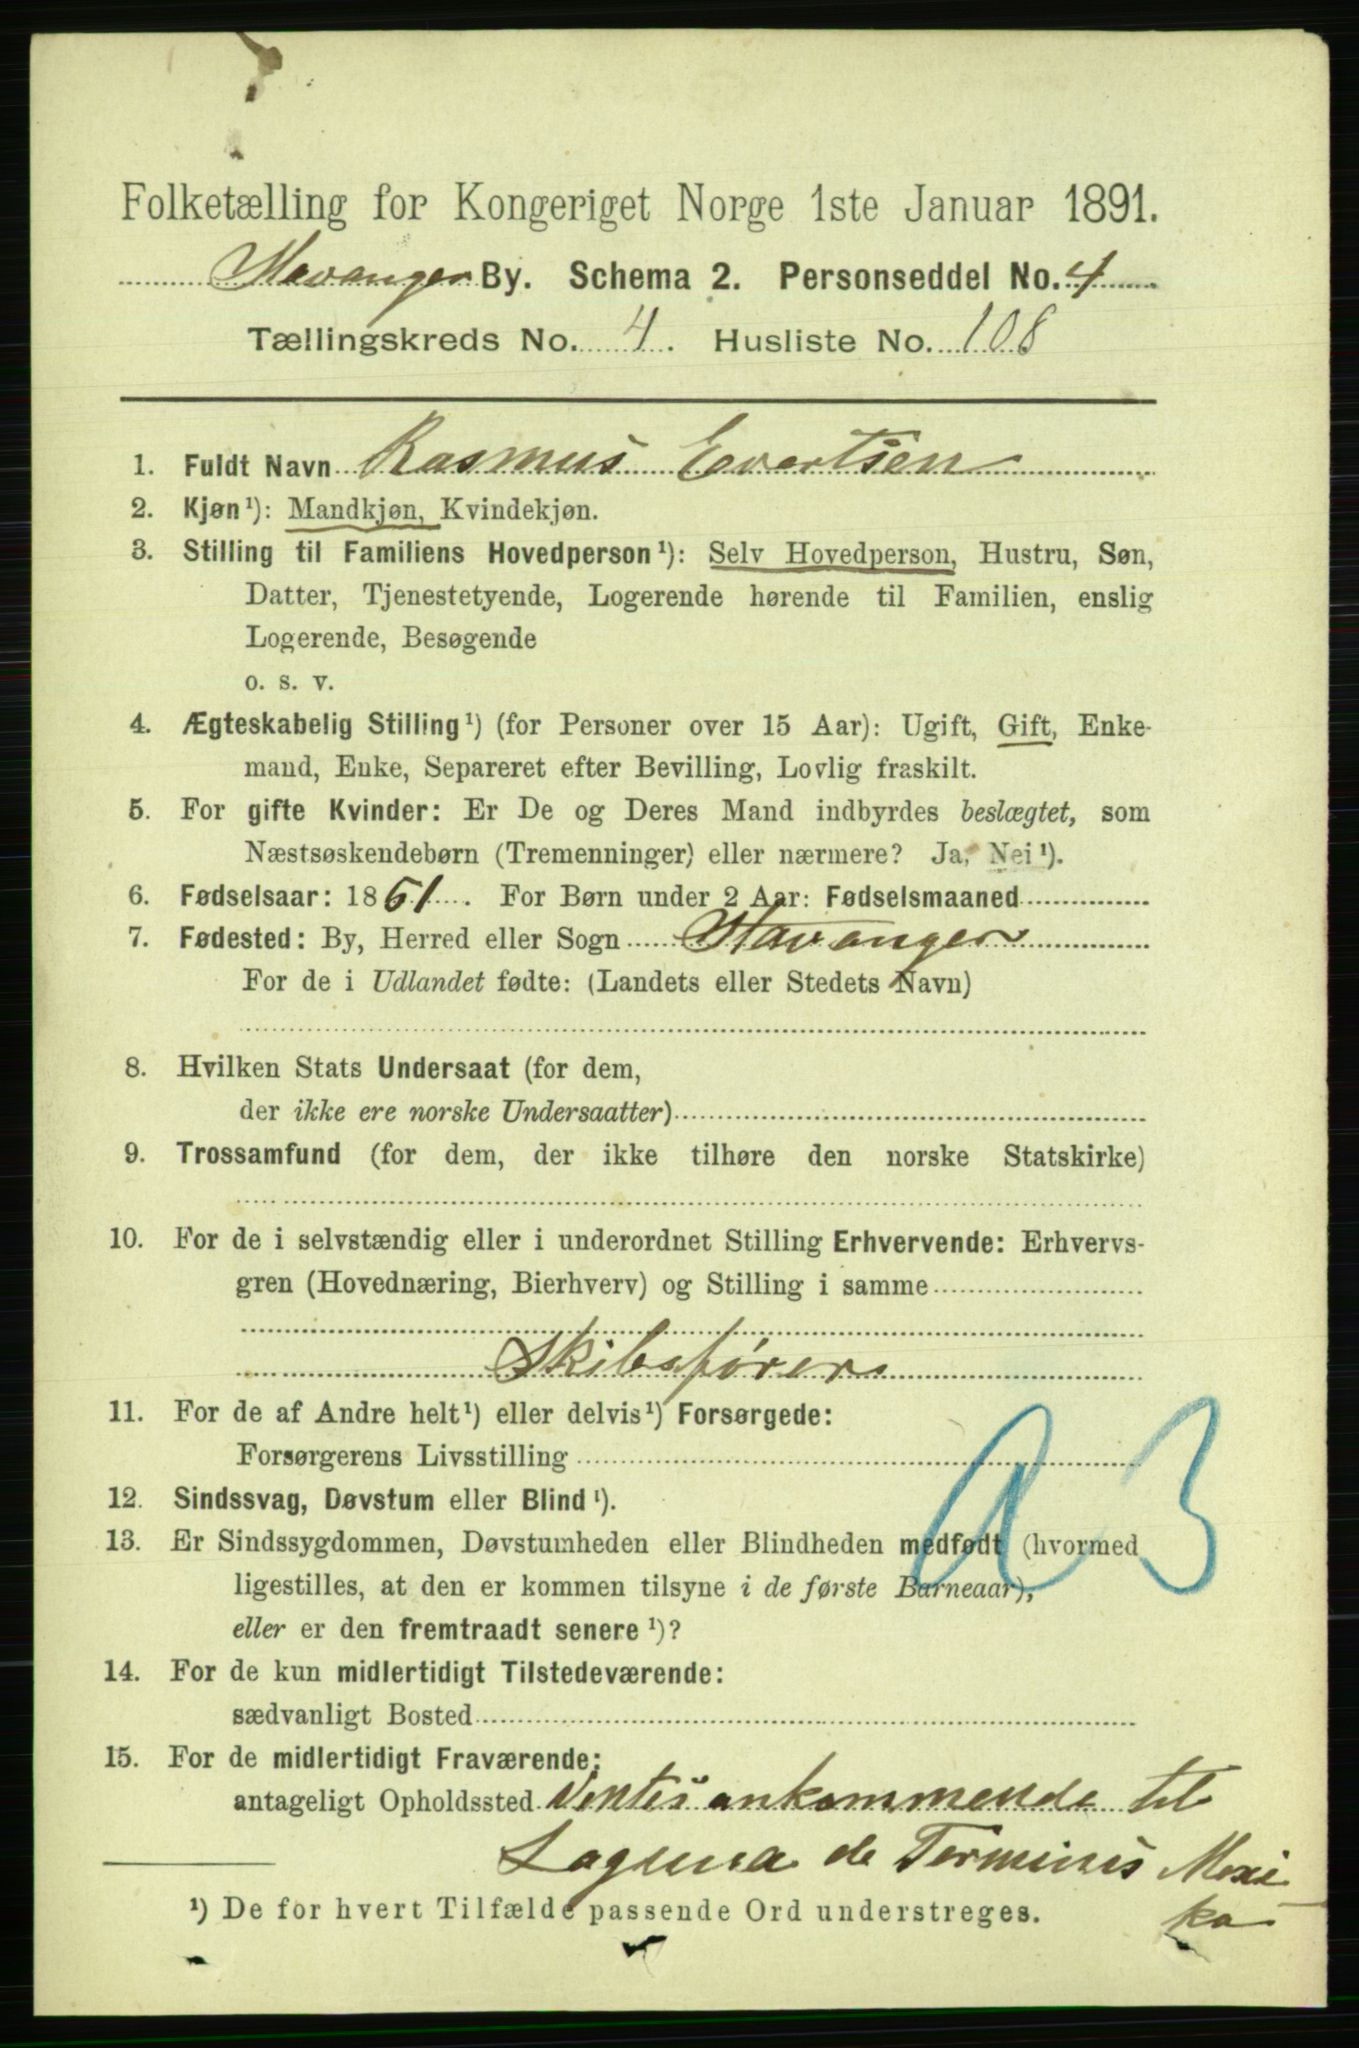 Folketælling for Kongeriget Norge 1ste Januar 1891.
Stavanger By. Schema 2. Personseddel No. 4
Tællingskreds No. 4. Husliste No. 108
1. Fuldt Navn Rasmus Evertsen
2. Kjøn¹): Mandkjøn, Kvindekjøn.
3. Stilling til Familiens Hovedperson¹): Selv Hovedperson, Hustru, Søn,
Datter, Tjenestetyende, Logerende hørende til Familien, enslig
Logerende, Besøgende
o. s. v.
4. Ægteskabelig Stilling¹) (for Personer over 15 Aar): Ugift, Gift, Enke-
mand, Enke, Separeret efter Bevilling, Lovlig fraskilt.
5. For gifte Kvinder: Er De og Deres Mand indbyrdes beslægtet, som
Næstsøskendebørn (Tremenninger) eller nærmere? Ja, Nei¹).
6. Fødselsaar: 1861. For Børn under 2 Aar: Fødselsmaaned
7. Fødested: By, Herred eller Sogn Stavanger
For de i Udlandet fødte: (Landets eller Stedets Navn)
8. Hvilken Stats Undersaat (for dem,
der ikke ere norske Undersaatter)
9. Trossamfund (for dem, der ikke tilhøre den norske Statskirke)
10. For de i selvstændig eller i underordnet Stilling Erhvervende: Erhvervs-
gren (Hovednæring, Bierhverv) og Stilling i samme
Skibsfører
11. For de af Andre helt¹) eller delvis¹) Forsørgede:
Forsørgerens Livsstilling
12. Sindssvag, Døvstum eller Blind¹).
13. Er Sindssygdommen, Døvstumheden eller Blindheden medfødt (hvormed
ligestilles, at den er kommen tilsyne i de første Barneaar),
eller er den fremtraadt senere¹)?
14. For de kun midlertidigt Tilstedeværende:
sædvanligt Bosted
15. For de midlertidigt Fraværende:
antageligt Opholdssted Ventes ankommende til
Laguna de Terminis Mexi
ko
¹) De for hvert Tilfælde passende Ord understreges.